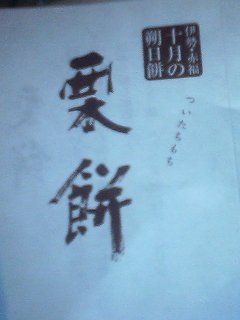 伊勢・赤福
十月の
朔日餅
ついたちもち
栗餅